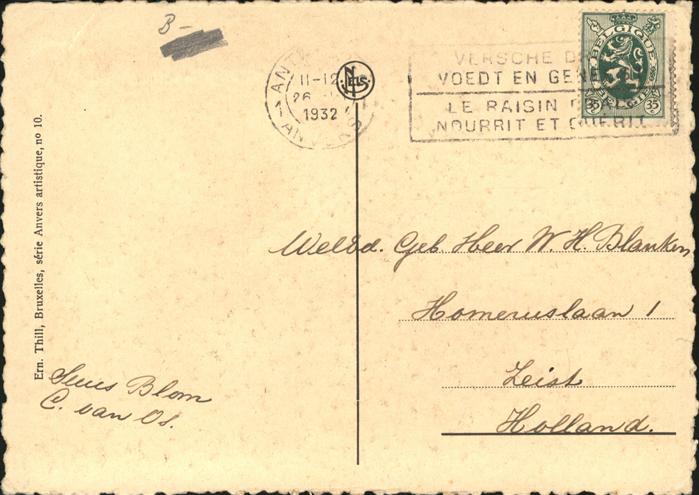 B-
Ern. Thill, Bruxelles, série Anvers artistique, no 10.
11-12
26
1932
NELS
VERSCHE
VOEDT EN
LE RAISIN
NOURRIT ET GUERIT
BELGIQUE
BELGIË
35 35
WelEd. Geb. Heer W. H. Blanken
Homeruslaan 1
Zeist
Holland.
Blom
C. van Os.